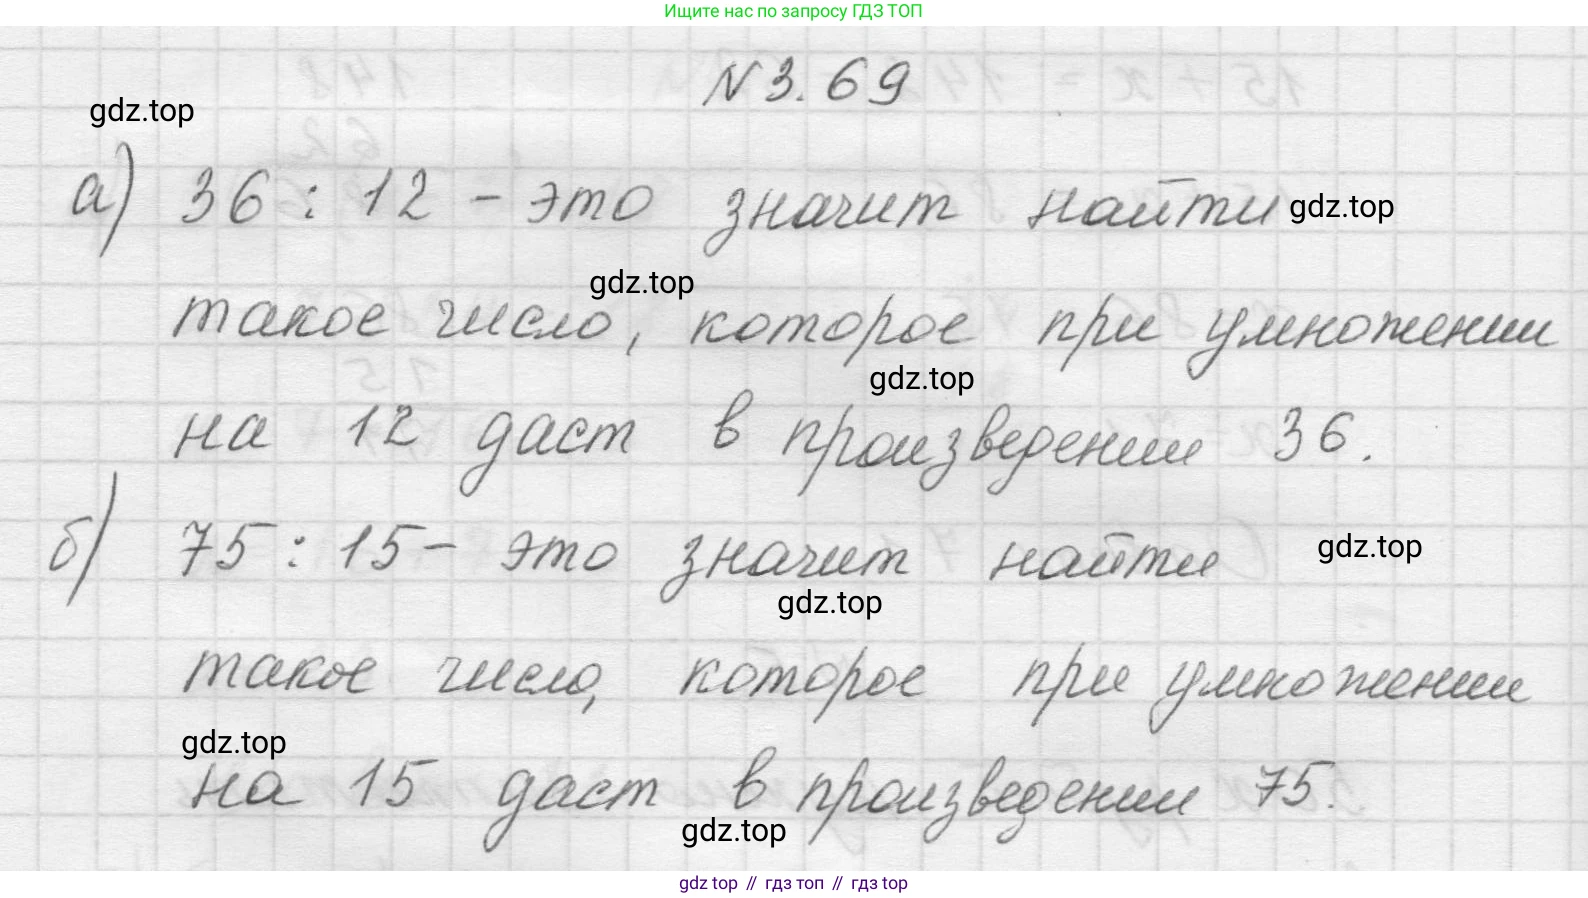 Ищите нас по запросу ГДЗ ТОП
N 3.69
gdz.top
а) 36 : 12 - это значит найти gdz.top
gdz.top
такое число, которое при умножении
gdz.top
на 12 даст в произведении 36.
б) 75 : 15 - это значит найти gdz.top
gdz.top
такое число, которое при умножении
gdz.top
на 15 даст в произведении 75.
gdz.top
gdz top // гдз топ // гдз top